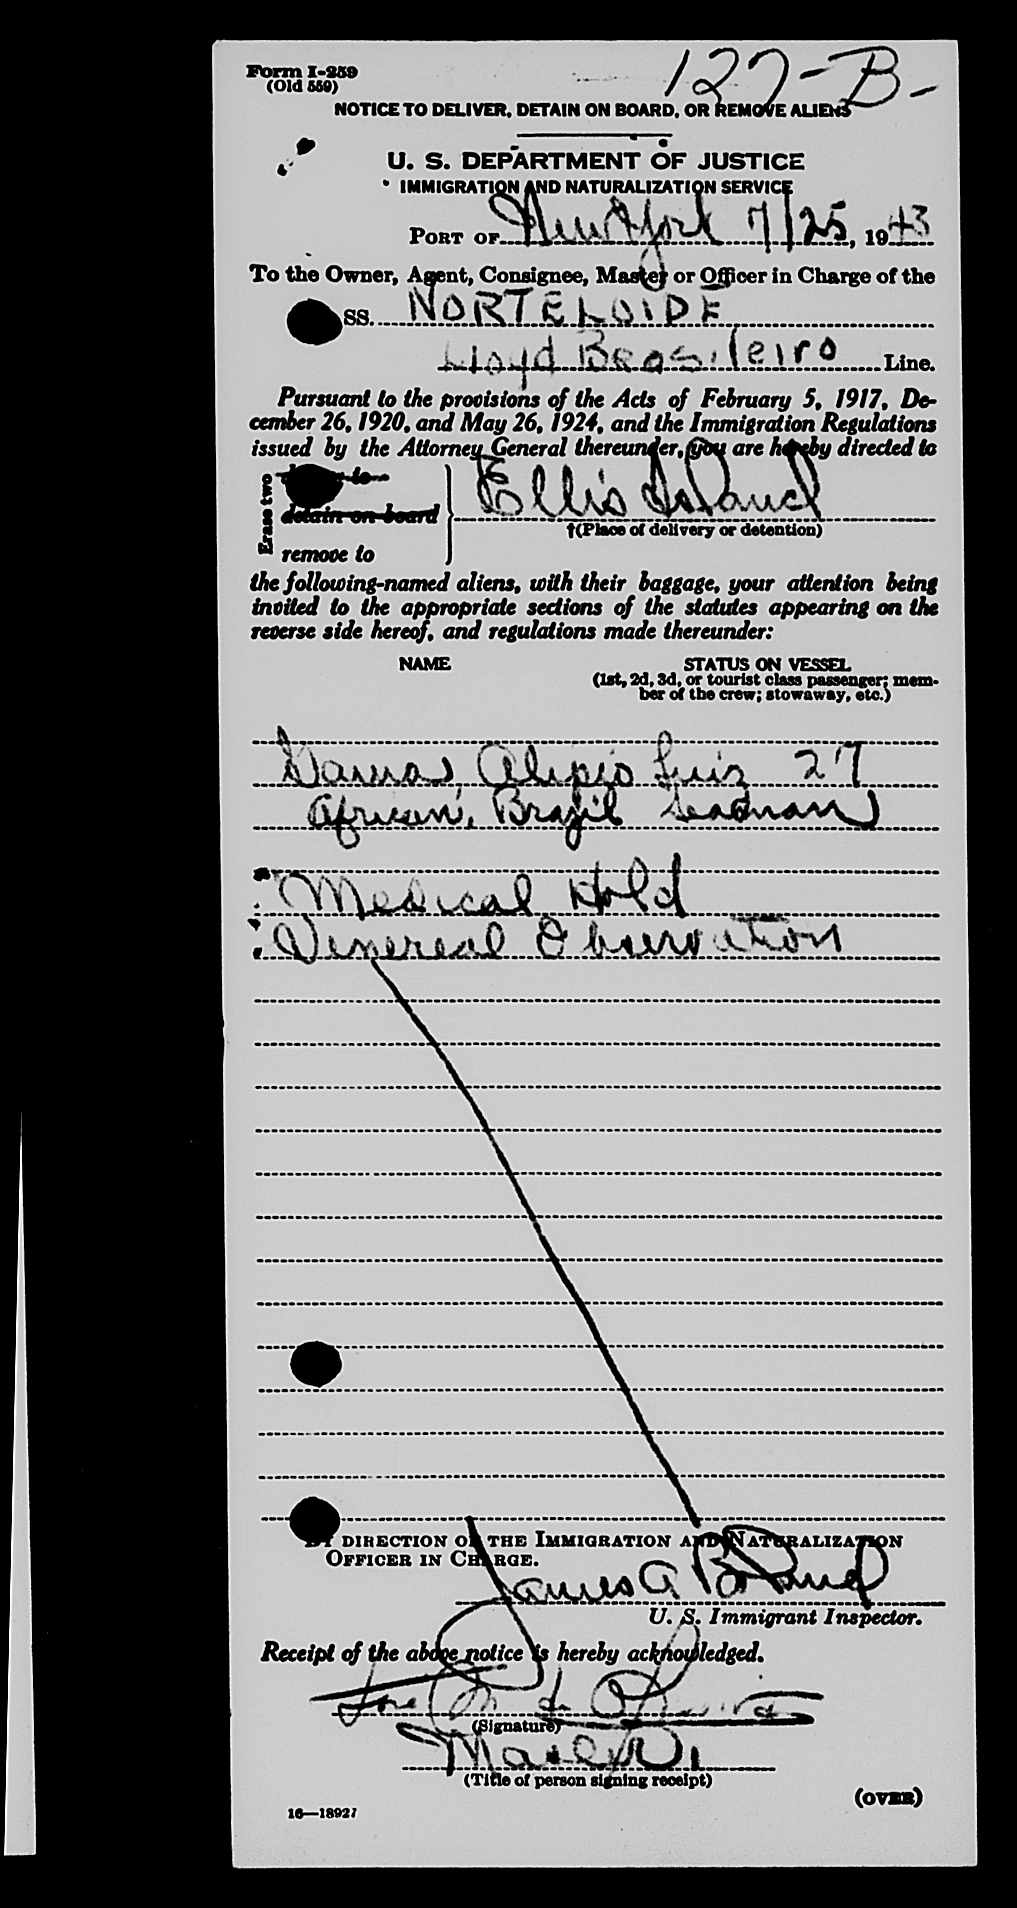 Form I-259
(Old 559)
127-B-
NOTICE TO DELIVER, DETAIN ON BOARD, OR REMOVE ALIENS
U. S. DEPARTMENT OF JUSTICE
IMMIGRATION AND NATURALIZATION SERVICE
PORT OF New York 7/25, 1943
To the Owner, Agent, Consignee, Master or Officer in Charge of the
SS. NORTELOIDE
Lloyd Brasileiro Line.
Pursuant to the provisions of the Acts of February 5, 1917, De-
cember 26, 1920, and May 26, 1924, and the Immigration Regulations
issued by the Attorney General thereunder, you are hereby directed to
Erase two
to
detain on board
remove to
Ellis Island
†(Place of delivery or detention)
the following-named aliens, with their baggage, your attention being
invited to the appropriate sections of the statutes appearing on the
reverse side hereof, and regulations made thereunder:
NAME STATUS ON VESSEL
(1st, 2d, 3d, or tourist class passenger; mem-
ber of the crew; stowaway, etc.)
Alipio Luiz 27
African, Brazil Seaman
Medical Hold
Venereal Observation
BY DIRECTION OF THE IMMIGRATION AND NATURALIZATION
OFFICER IN CHARGE.
James A Boland
U. S. Immigrant Inspector.
Receipt of the above notice is hereby acknowledged.
Jose M de Oliveira
(Signature)
Master
(Title of person signing receipt)
(OVER)
16—18927